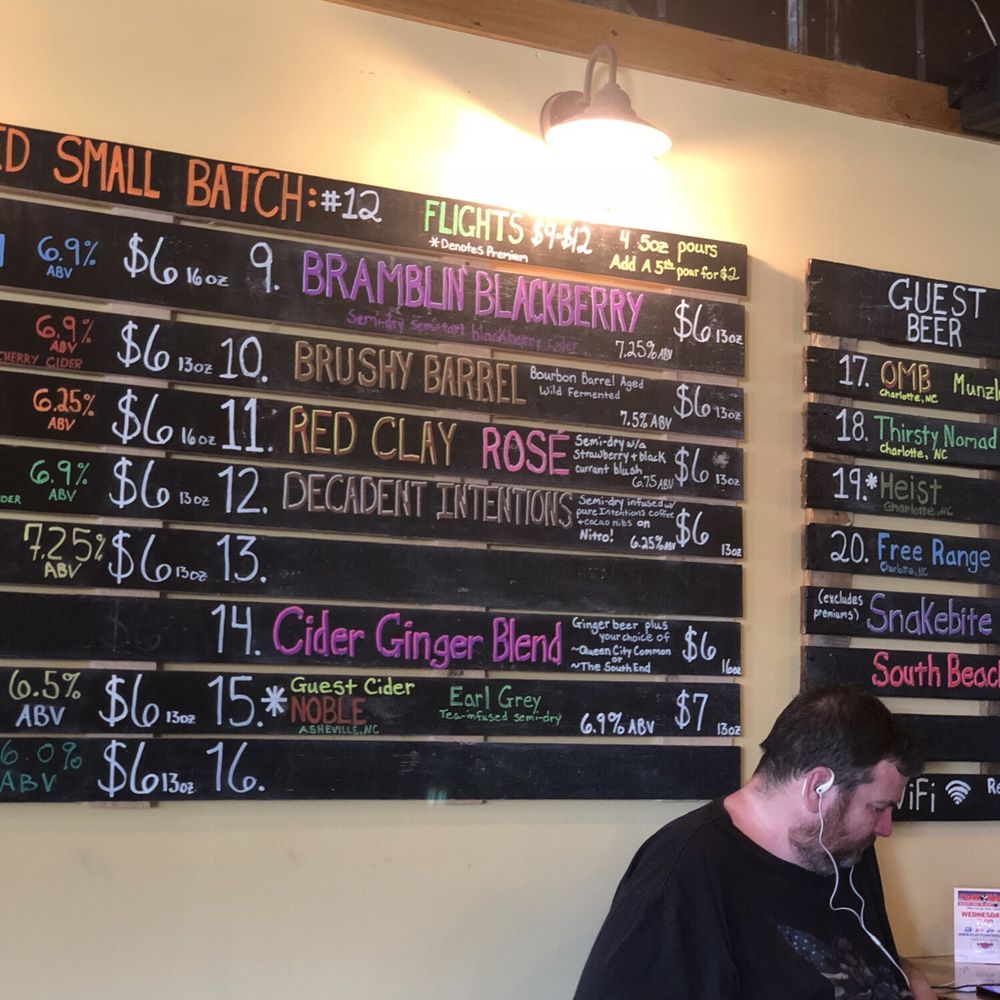 SMALL BATCH: #12
FLIGHTS $9-$12 4 5oz pours
*Denotes Premium Add A 5th pour for $2
6.9% ABV $6 16oz
6.9% ABV $6 13oz
CHERRY CIDER
6.25% ABV $6 16oz
6.9% ABV $6 13oz
7.25% ABV $6 13oz
6.5% ABV $6 13oz
6.0% ABV $6 13oz
9. BRAMBLIN' BLACKBERRY $6 13oz
Semi-dry semi-tart blackberry cider 7.25% ABV
10. BRUSHY BARREL Bourbon Barrel Aged $6 13oz
Wild Fermented
7.5% ABV
11. RED CLAY ROSÉ Semi-dry w/a
strawberry + black
currant blush $6 13oz
6.75 ABV
12. DECADENT INTENTIONS Semi-dry infused w/
pure Intentions coffee
+ cacao nibs on
Nitro! 6.25% ABV $6 13oz
13.
14. Cider Ginger Blend Ginger beer plus
your choice of
~Queen City Common
or
~The South End $6 16oz
15.* Guest Cider
NOBLE
ASHEVILLE, NC
Earl Grey
Tea-infused semi-dry
6.9% ABV $7 13oz
16.
GUEST
BEER
17. OMB
Charlotte, NC
18. Thirsty Nomad
Charlotte, NC
19.* Heist
Charlotte, NC
20. Free Range
Charlotte, NC
(excludes
premiums) Snakebite
South Beach
WiFi
WEDNESDA